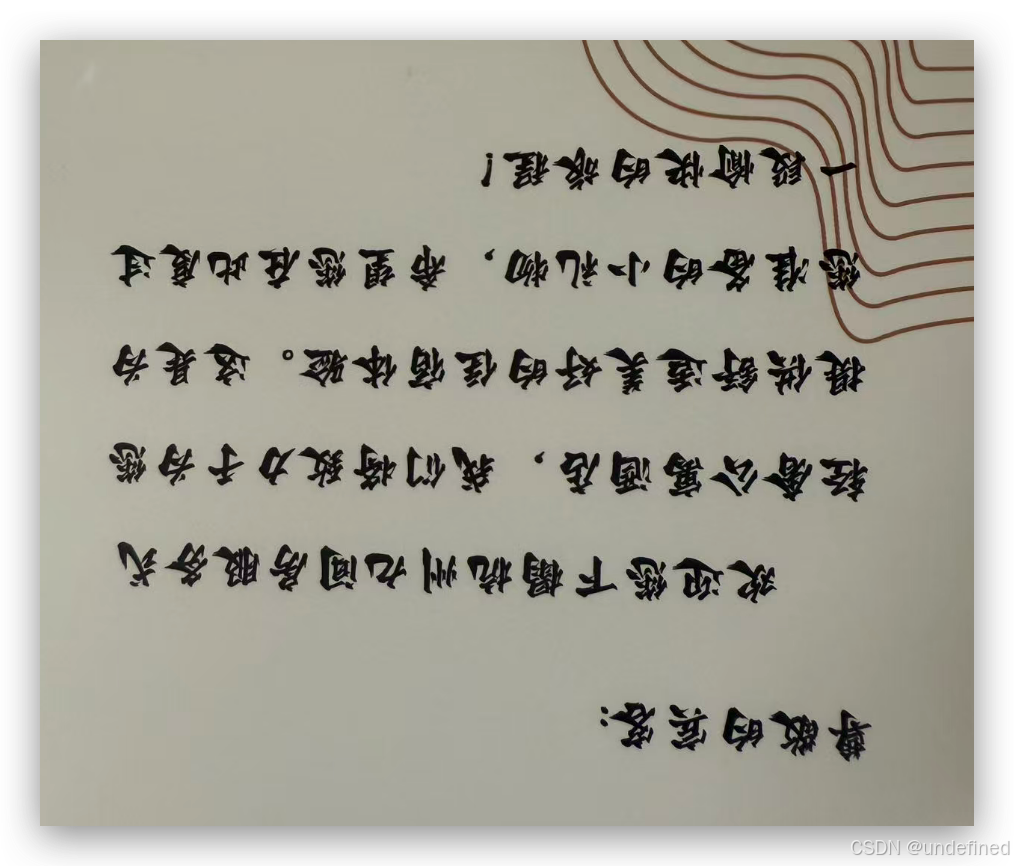 尊敬的宾客：
欢迎您下榻杭州九间房服务式
轻奢公寓酒店，我们将致力于为您
提供舒适美好的住宿体验。这是为
您准备的小礼物，希望您在此度过
一段愉快的旅程！
CSDN @undefined